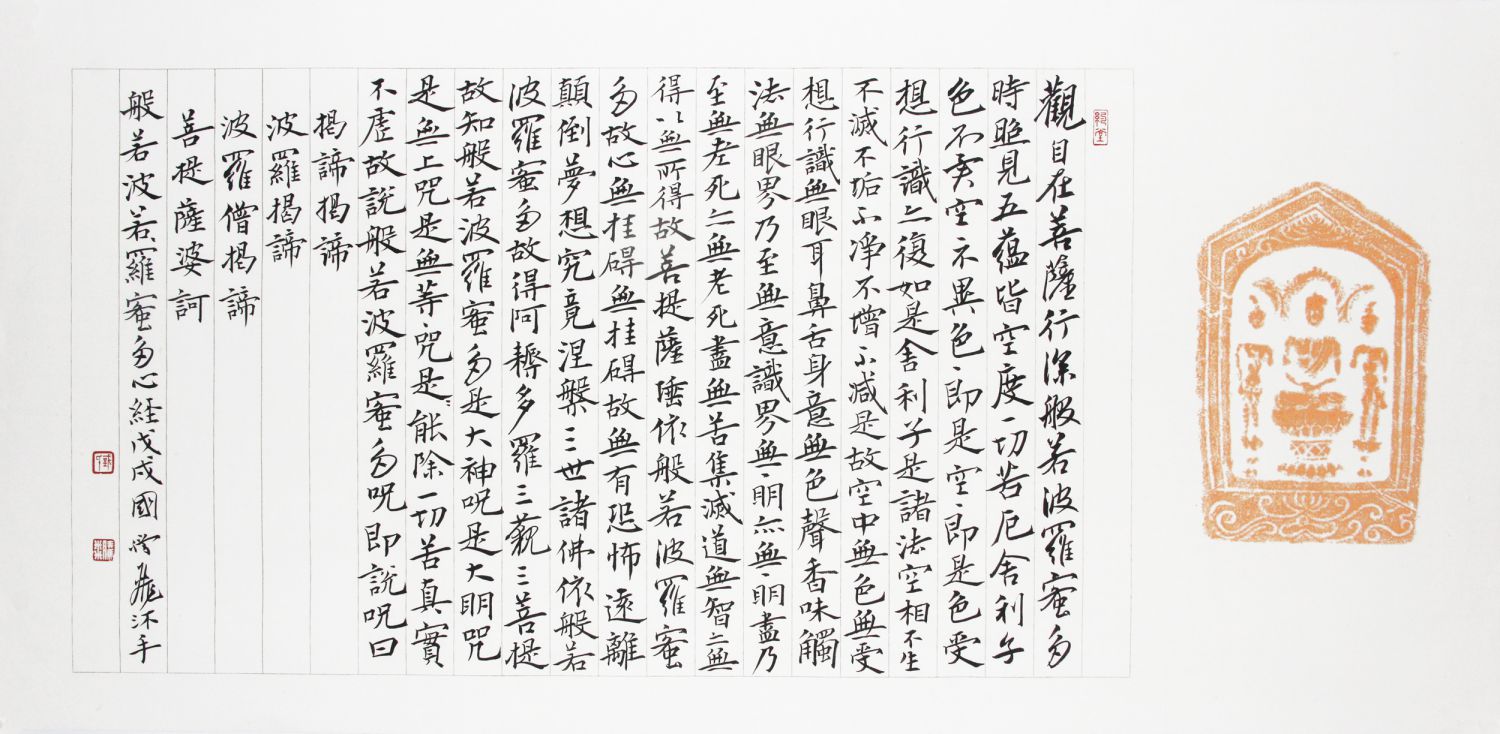 觀自在菩薩行深般若波羅蜜多
時照見五蘊皆空度一切苦厄舍利子
色不異空不異色〻即是空〻即是色受
想行識亦復如是舍利子是諸法空相不生
不滅不垢不淨不增不減是故空中無色無受
想行識無眼耳鼻舌身意無色聲香味觸
法無眼界乃至無意識界無〻明亦無〻明盡乃
至無老死亦無老死盡無苦集滅道無智亦無
得以無所得故菩提薩埵依般若波羅蜜
多故心無挂碍無挂碍故無有恐怖遠離
顛倒夢想究竟涅槃三世諸佛依般若
波羅蜜多故得阿耨多羅三藐三菩提
故知般若波羅蜜多是大神咒是大明咒
是無上咒是無等〻咒是〻能除一切苦真實
不虛故說般若波羅蜜多咒即說咒曰
揭諦揭諦
波羅揭諦
波羅僧揭諦
菩提薩婆訶
般若波若羅蜜多心経戊戌國沐手